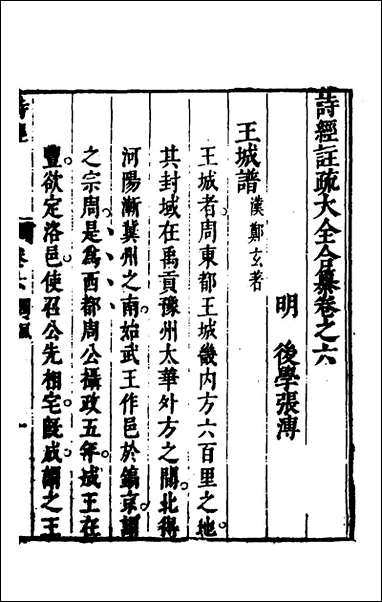 詩經註疏大全合纂卷之六
明　後學張溥
王城譜　漢鄭玄著
王城者周東都王城畿內方六百里之地
其封域在禹貢豫州太華外方之間北得
河陽漸冀州之南始武王作邑於鎬京謂
之宗周是爲西都周公攝政五年成王在
豐欲定洛邑使召公先相宅旣成謂之王
詩經